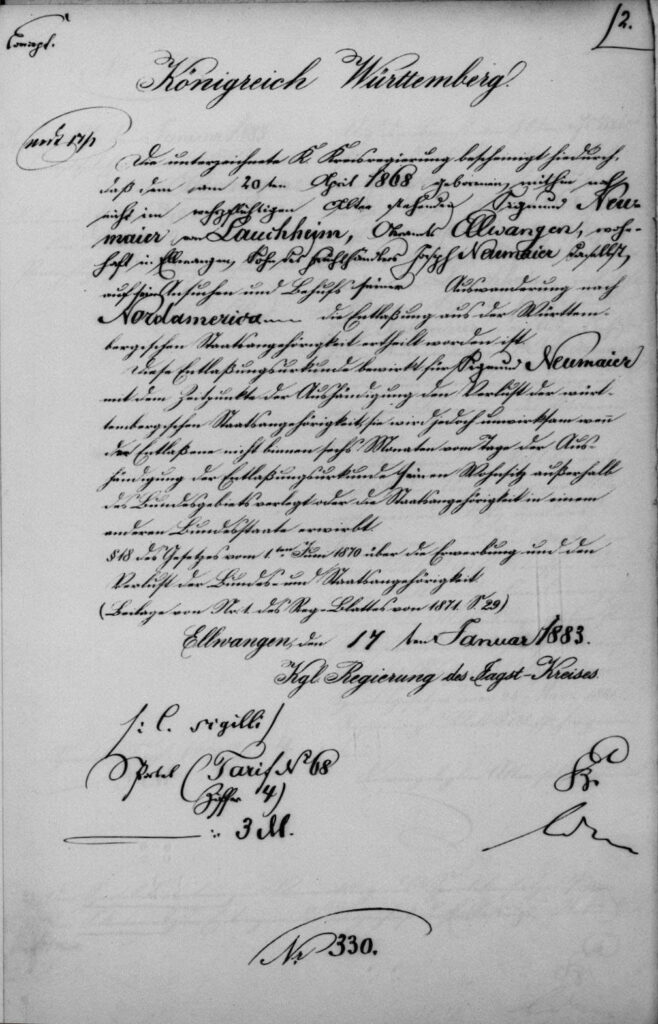 2.
Concept.
Königreich Württemberg.
Die unterzeichnete K. Kreisregierung bescheinigt hiedurch,
daß dem am 20ten April 1868 geborenen, mithin noch
nicht im wehrpflichtigen Alter stehenden Sigmund Neu-
maier von Lauchheim, Oberamts Ellwangen, wohn-
haft in Ellwangen, Sohn des Joseph Neumaier daselbst,
auf sein Ansuchen und Behufs seiner Auswanderung nach
Nordamerica die Entlaßung aus der Württem-
bergischen Staatsangehörigkeit ertheilt worden ist.
Diese Entlaßungsurkunde bewirkt für Sigmund Neumaier
mit dem Zeitpunkte der Aushändigung den Verlust der würt-
tembergischen Staatsangehörigkeit, sie wird jedoch unwirksam, wenn
der Entlaßene nicht binnen sechs Monaten vom Tage der Aus-
händigung der Entlaßungsurkunde seinen Wohnsitz außerhalb
des Bundesgebiets verlegt oder die Staatsangehörigkeit in einem
anderen Bundesstaate erwirbt.
§ 18 des Gesetzes vom 1ten Juni 1870 über die Erwerbung und den
Verlust der Bundes- und Staatsangehörigkeit
(Beilage von No 1. des Reg-Blattes von 1871. S. 29)
Ellwangen, den 17 ten Januar 1883.
Kgl. Regierung des Jagst-Kreises.
/: L. sigilli /
Sportel (Tarif No 68
Ziffer 4)
:. 3 M.
No 330.